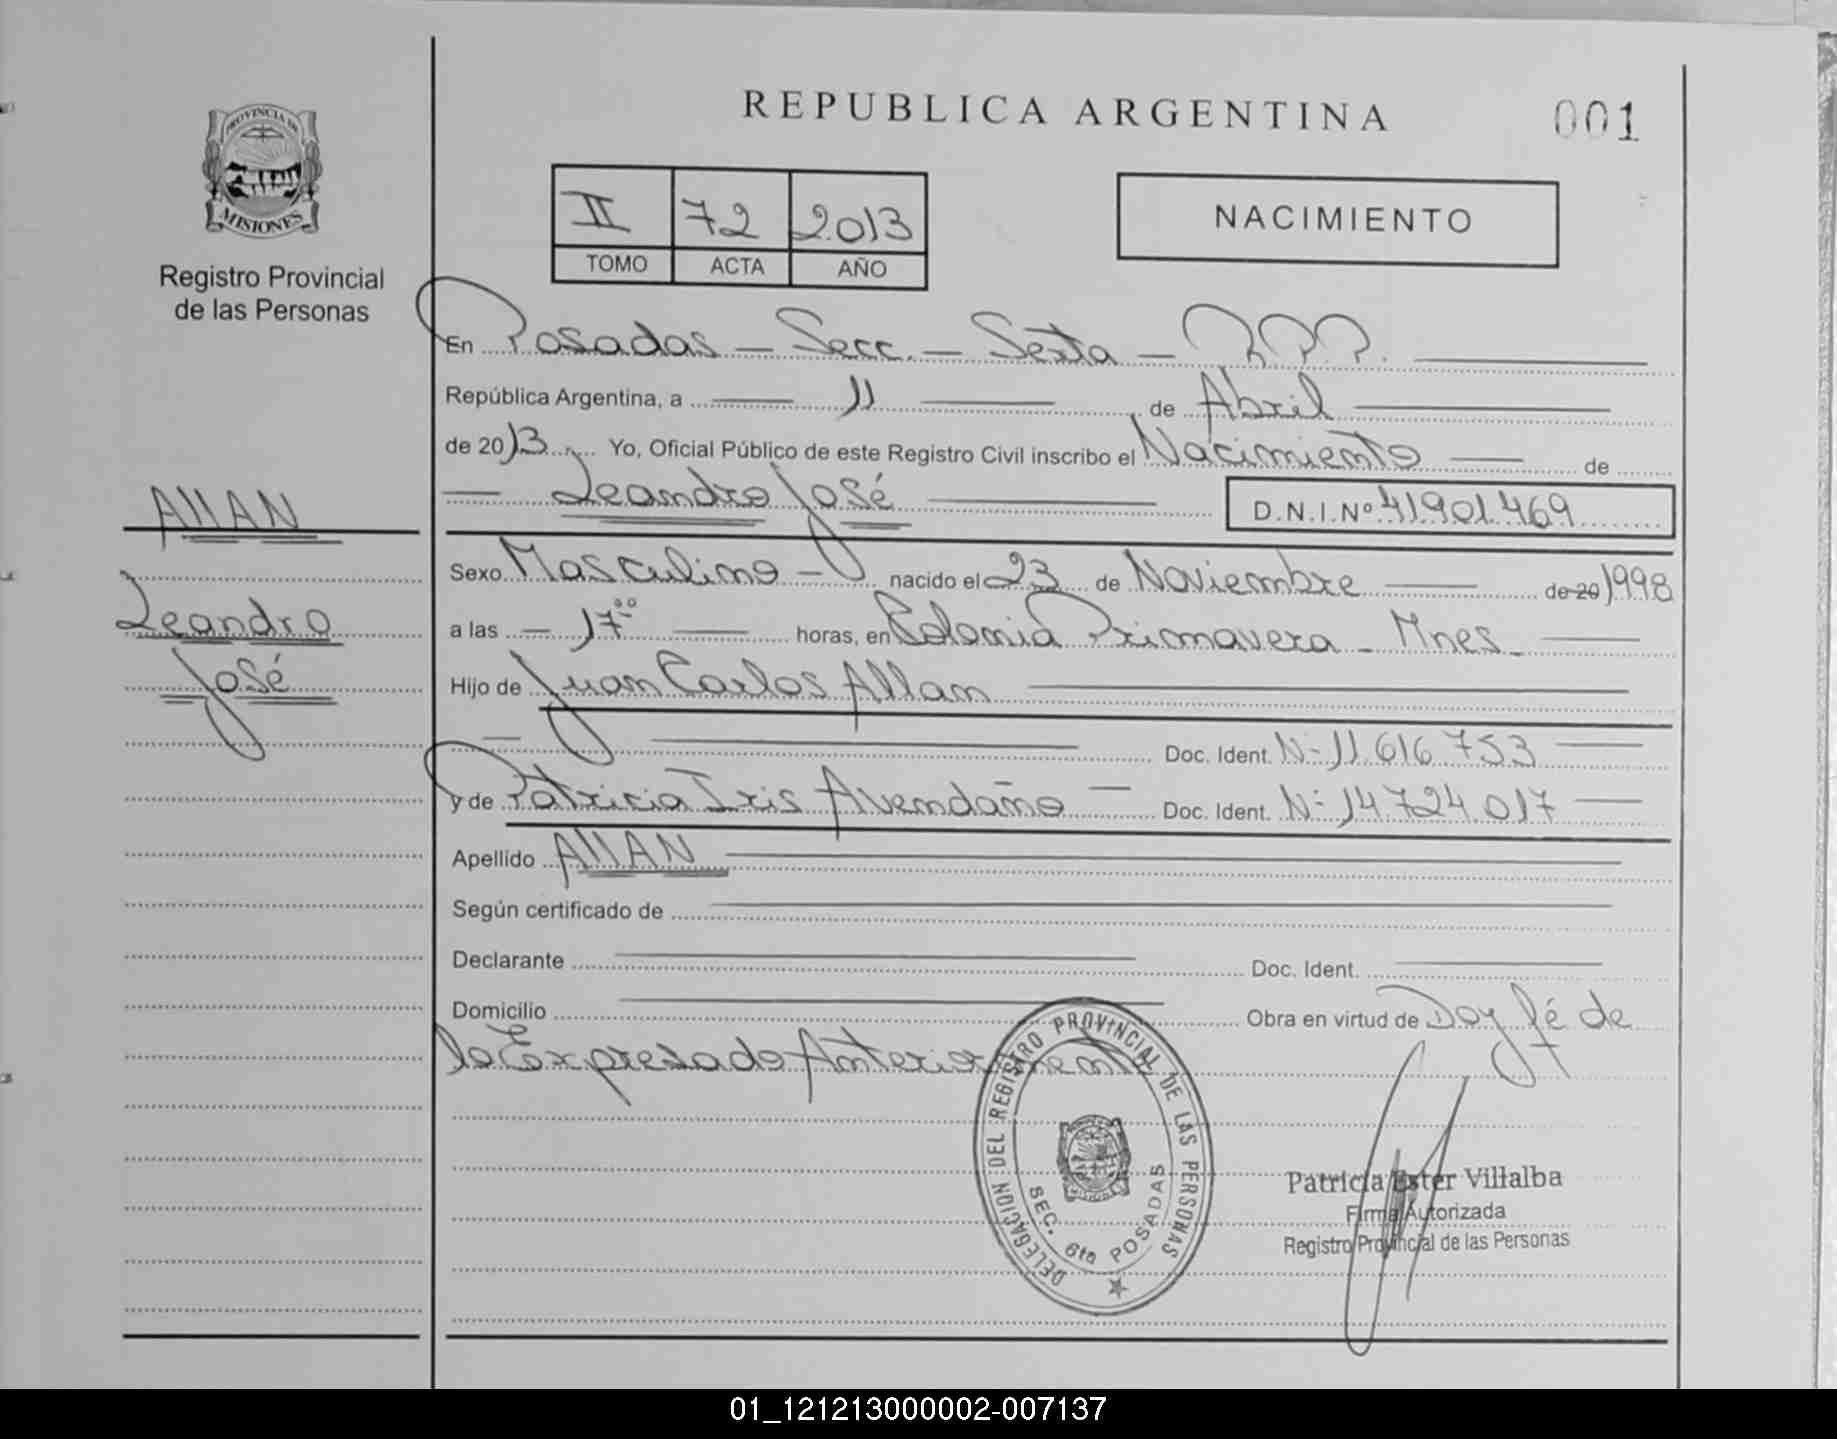 REPUBLICA ARGENTINA
001
PROVINCIA DE
MISIONES
Registro Provincial
de las Personas
II 72 2013
TOMO ACTA AÑO
NACIMIENTO
En Posadas - Secc. - Sexta - R.P.P.
República Argentina, a 11 de Abril
de 2013 Yo, Oficial Público de este Registro Civil inscribo el Nacimiento de
Leandro José D.N.I.Nº 41901.469
Sexo Masculino - nacido el 23 de Noviembre de 20 1998
a las - 17°° horas, en Colonia Primavera - Mnes -
Hijo de Juan Carlos Allan
Doc. Ident. Nº 11.616.753
y de Patricia Iris Avendaño Doc. Ident. Nº 14.724.017
Apellido AllAN
Según certificado de
Declarante Doc. Ident.
Domicilio Obra en virtud de Doy fé de
lo Expresado Anteriormente
AllAN
Leandro
José
DELEGACION DEL REGISTRO PROVINCIAL DE LAS PERSONAS
SEC. 6ta POSADAS
Patricia Ester Villalba
Firma Autorizada
Registro Provincial de las Personas
01_121213000002-007137